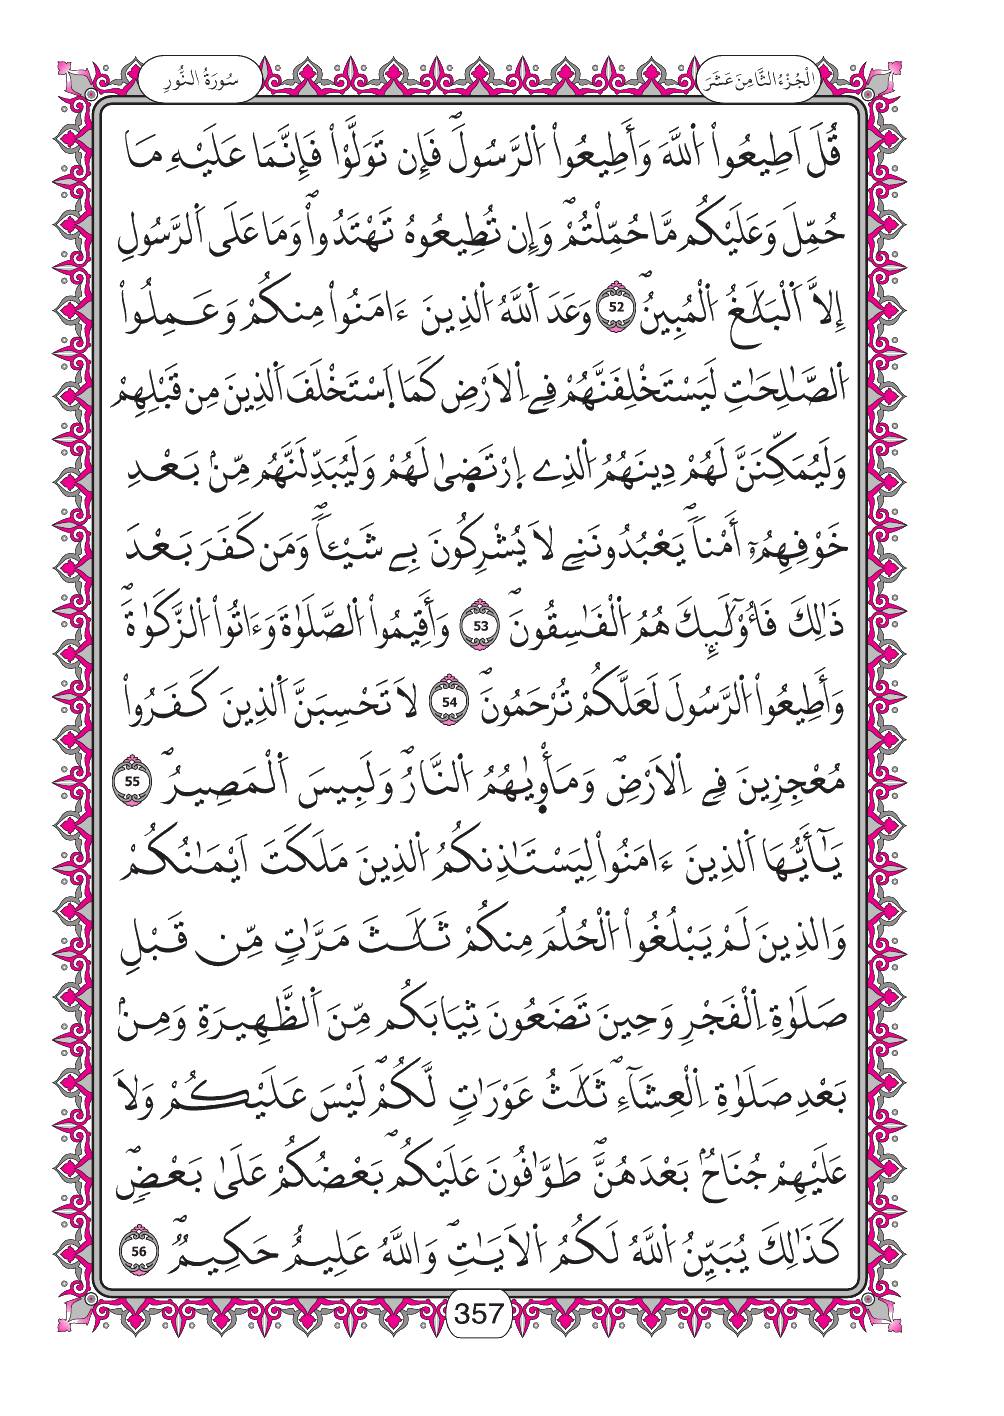 الْجُزْءُ الثَّامِنَ عَشَرَ
سُورَةُ النُّورِ
قُلَ اَطِيعُواْ اُللَّهَ وَأَطِيعُواْ اُلرَّسُولَۖ فَإِن تَوَلَّوْاْ فَإِنَّمَا عَلَيْهِ مَا
حُمِّلَ وَعَلَيْكُم مَّا حُمِّلْتُمْۖ وَإِن تُطِيعُوهُ تَهْتَدُواْۖ وَمَا عَلَى اَلرَّسُولِ
إِلاَّ اَلْبَلَٰغُ اُلْمُبِينُۖ 52 وَعَدَ اَللَّهُ اُلذِينَ ءَامَنُواْ مِنكُمْ وَعَمِلُواْ
اُلصَّٰلِحَٰتِ لَيَسْتَخْلِفَنَّهُمْ فِے اِلاَرْضِ كَمَا اَسْتَخْلَفَ اَلذِينَ مِن قَبْلِهِمْ
وَلَيُمَكِّنَنَّ لَهُمْ دِينَهُمُ اُلذِے اِرْتَضٜىٰ لَهُمْ وَلَيُبَدِّلَنَّهُم مِّنۢ بَعْدِ
خَوْفِهِمُۥٓ أَمْناٗۖ يَعْبُدُونَنِے لَا يُشْرِكُونَ بِے شَيْـٔاٗۖ وَمَن كَفَرَ بَعْدَ
ذَٰلِكَ فَأُوْلَٰٓئِكَ هُمُ اُلْفَٰسِقُونَۖ 53 وَأَقِيمُواْ اُلصَّلَوٰةَ وَءَاتُواْ اُلزَّكَوٰةَۖ
وَأَطِيعُواْ اُلرَّسُولَ لَعَلَّكُمْ تُرْحَمُونَۖ 54 لَا تَحْسِبَنَّ اَلذِينَ كَفَرُواْ
مُعْجِزِينَ فِے اِلاَرْضِۖ وَمَأْوٜىٰهُمُ اُلنَّارُۖ وَلَبِيسَ اَلْمَصِيرُۖ 55
يَٰٓأَيُّهَا اَلذِينَ ءَامَنُواْ لِيَسْتَٰذِنكُمُ اُلذِينَ مَلَكَتَ اَيْمَٰنُكُمْ
وَالذِينَ لَمْ يَبْلُغُواْ اُلْحُلُمَ مِنكُمْ ثَلَٰثَ مَرَّٰتٖ مِّن قَبْلِ
صَلَوٰةِ اِلْفَجْرِ وَحِينَ تَضَعُونَ ثِيَابَكُم مِّنَ اَلظَّهِيرَةِ وَمِنۢ
بَعْدِ صَلَوٰةِ اِلْعِشَآءِۖ ثَلَٰثُ عَوْرَٰتٖ لَّكُمْۖ لَيْسَ عَلَيْكُمْ وَلَا
عَلَيْهِمْ جُنَاحُۢ بَعْدَهُنَّۖ طَوَّٰفُونَ عَلَيْكُمۖ بَعْضُكُمْ عَلَىٰ بَعْضٖۖ
كَذَٰلِكَ يُبَيِّنُ اُللَّهُ لَكُمُ اُلاَيَٰتِۖ وَاللَّهُ عَلِيمٌ حَكِيمٌۖ 56
357